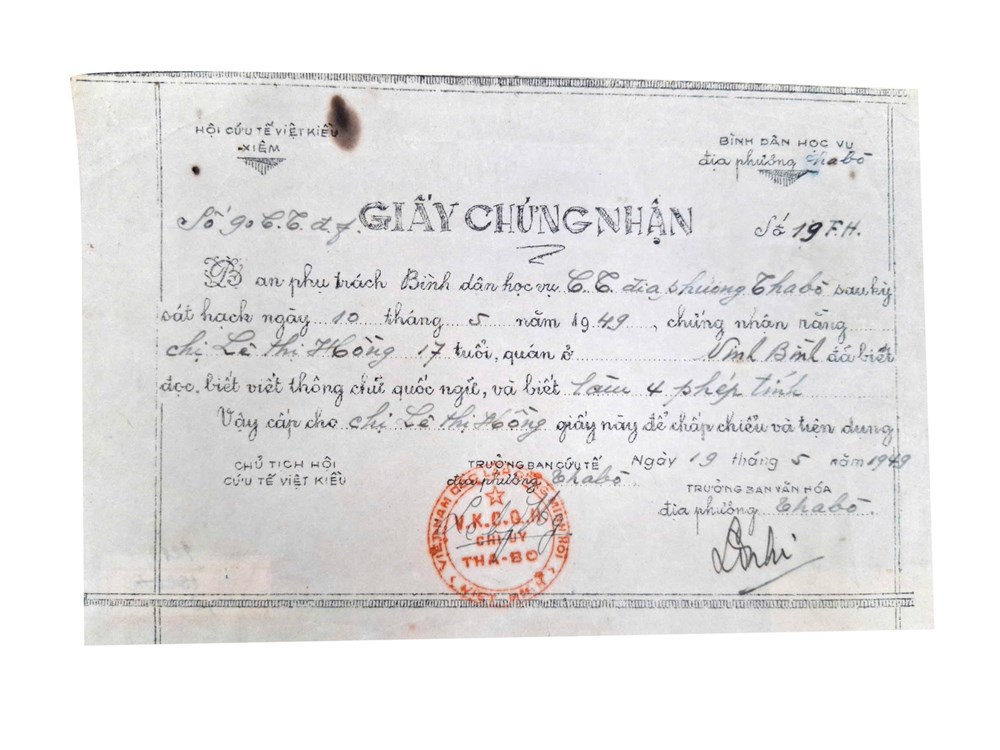 HỘI CỨU TẾ VIỆT KIỀU
XIÊM
BÌNH DÂN HỌC VỤ
địa phương Thabò
Số 90 C.T.đ.f.
GIẤY CHỨNG NHẬN
Số 19 F.H.
Ban phụ trách Bình dân học vụ C.T. địa phương Thabò sau kỳ
sát hạch ngày 10 tháng 5 năm 1949, chứng nhân rằng
chị Lê thị Hồng 17 tuổi, quán ở Vĩnh Bình đã biết
đọc, biết viết thông chữ quốc ngữ, và biết làm 4 phép tính
Vậy cấp cho chị Lê thị Hồng giấy này để chấp chiểu và tiện dung
Ngày 19 tháng 5 năm 1949
CHỦ TỊCH HỘI
CỨU TẾ VIỆT KIỀU
TRƯỞNG BAN CỨU TẾ
địa phương Thabò.
TRƯỞNG BAN VĂN HÓA
địa phương Thabò.
VIỆT NAM ĐỘC LẬP ĐỒNG MINH HỘI
V.K.C.Q.H
CHI ỦY
THA-BO